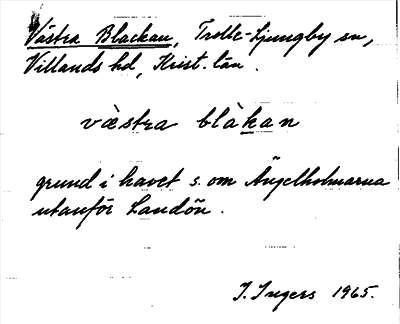 Västra Blackan, Trolle-Ljungby sn,
Villands hd, Krist. län.
vàstra blàkan
grund i havet s. om Ängelholmarna
utanför Landön.
I. Ingers 1965.